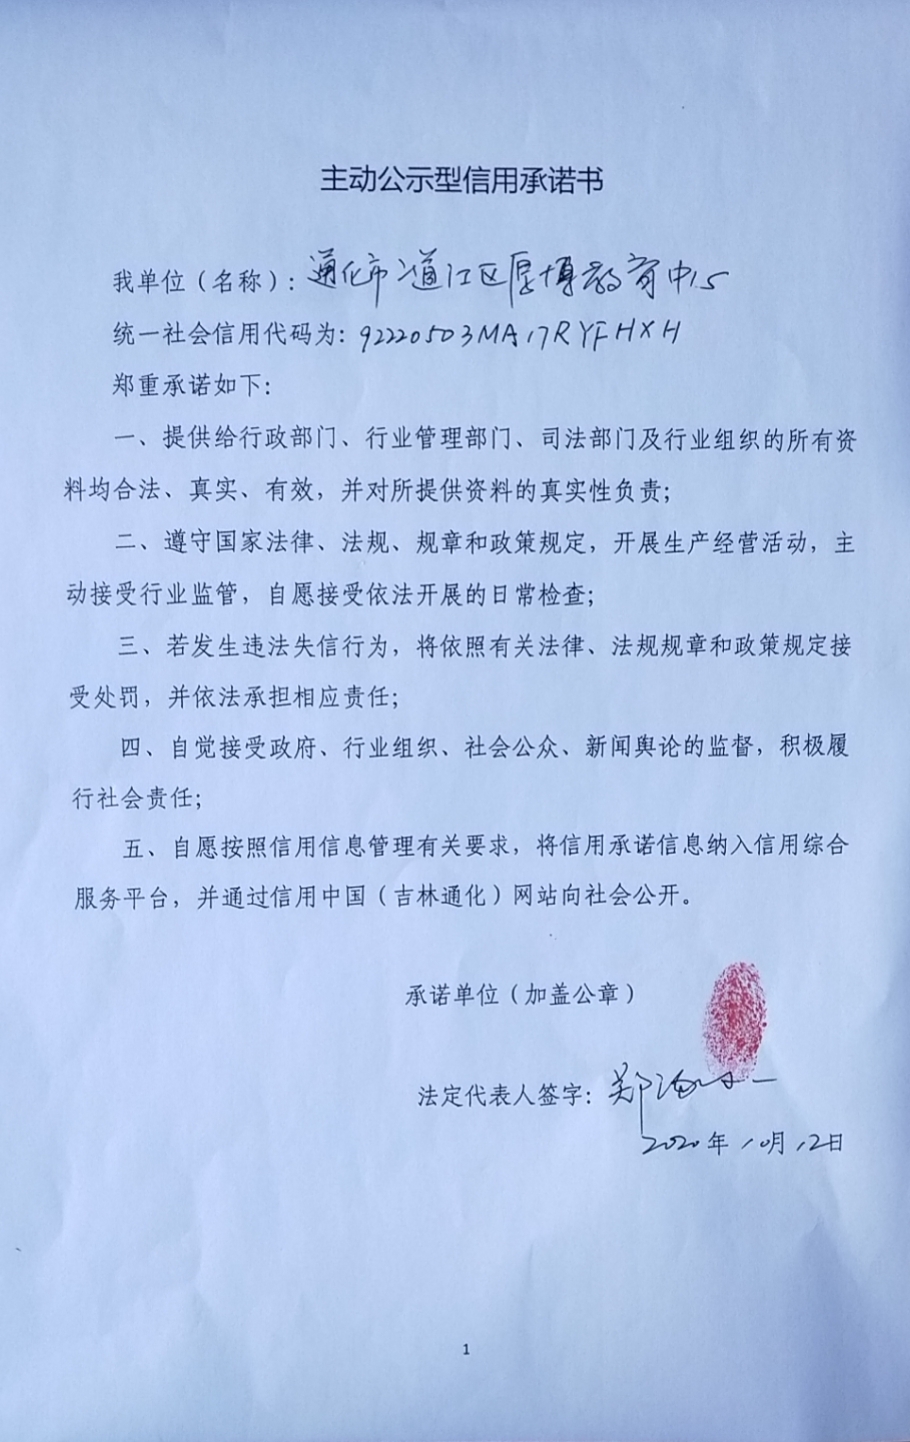 主动公示型信用承诺书
我单位（名称）：通化市二道江区厚博教育中心
统一社会信用代码为：92220503MA17RYFHXH
郑重承诺如下：
一、提供给行政部门、行业管理部门、司法部门及行业组织的所有资
料均合法、真实、有效，并对所提供资料的真实性负责；
二、遵守国家法律、法规、规章和政策规定，开展生产经营活动，主
动接受行业监管，自愿接受依法开展的日常检查；
三、若发生违法失信行为，将依照有关法律、法规规章和政策规定接
受处罚，并依法承担相应责任；
四、自觉接受政府、行业组织、社会公众、新闻舆论的监督，积极履
行社会责任；
五、自愿按照信用信息管理有关要求，将信用承诺信息纳入信用综合
服务平台，并通过信用中国（吉林通化）网站向社会公开。
承诺单位（加盖公章）
法定代表人签字：郑
2020年10月12日
1